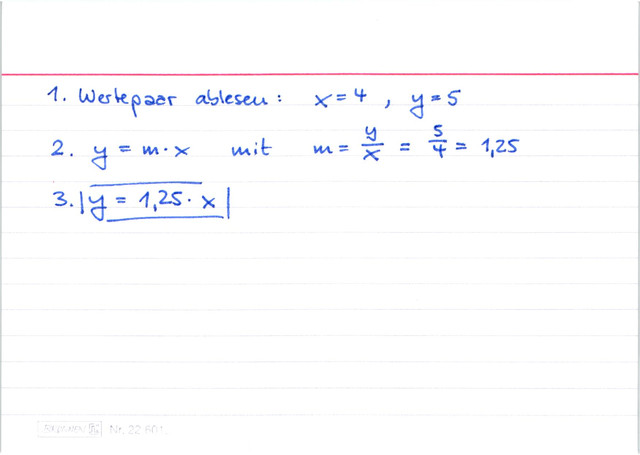 1. Wertepaar ablesen: x = 4, y = 5
2. y = m · x mit m = y/x = 5/4 = 1,25
3. y = 1,25 · x
Nr. 22 601